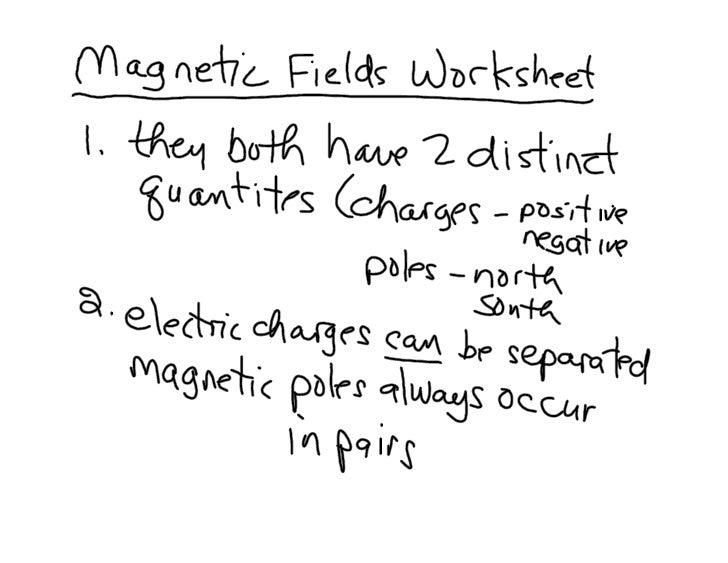 Magnetic Fields Worksheet
1. they both have 2 distinct
quantites (charges - positive
negative
poles - north
south
2. electric charges can be separated
magnetic poles always occur
in pairs